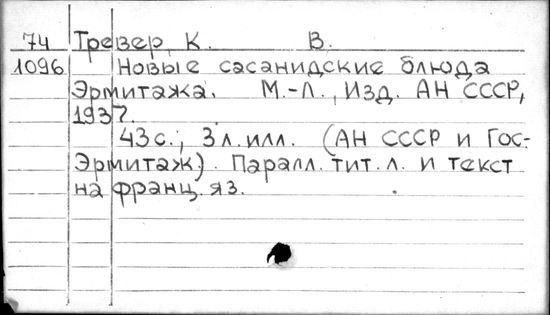 74 Тревер, К. В.
1096 Новые сасанидские блюда
Эрмитажа. М.-Л., Изд. АН СССР,
1937.
43с., 3л.илл. (АН СССР и Гос-
Эрмитаж). Паралл. тит. л. и текст
на франц. яз.